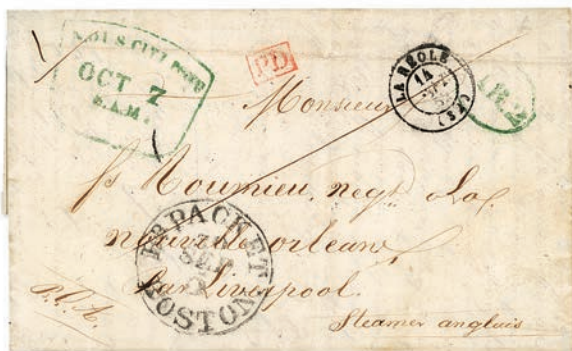 OCT 7
PD
LA RÉOLE
14
SEPT
(32)
Monsieur
fs Roumieu, negt a La
nouvelle orleans
par Liverpool.
Steamer anglais
Br PACKET
SEP
BOSTON